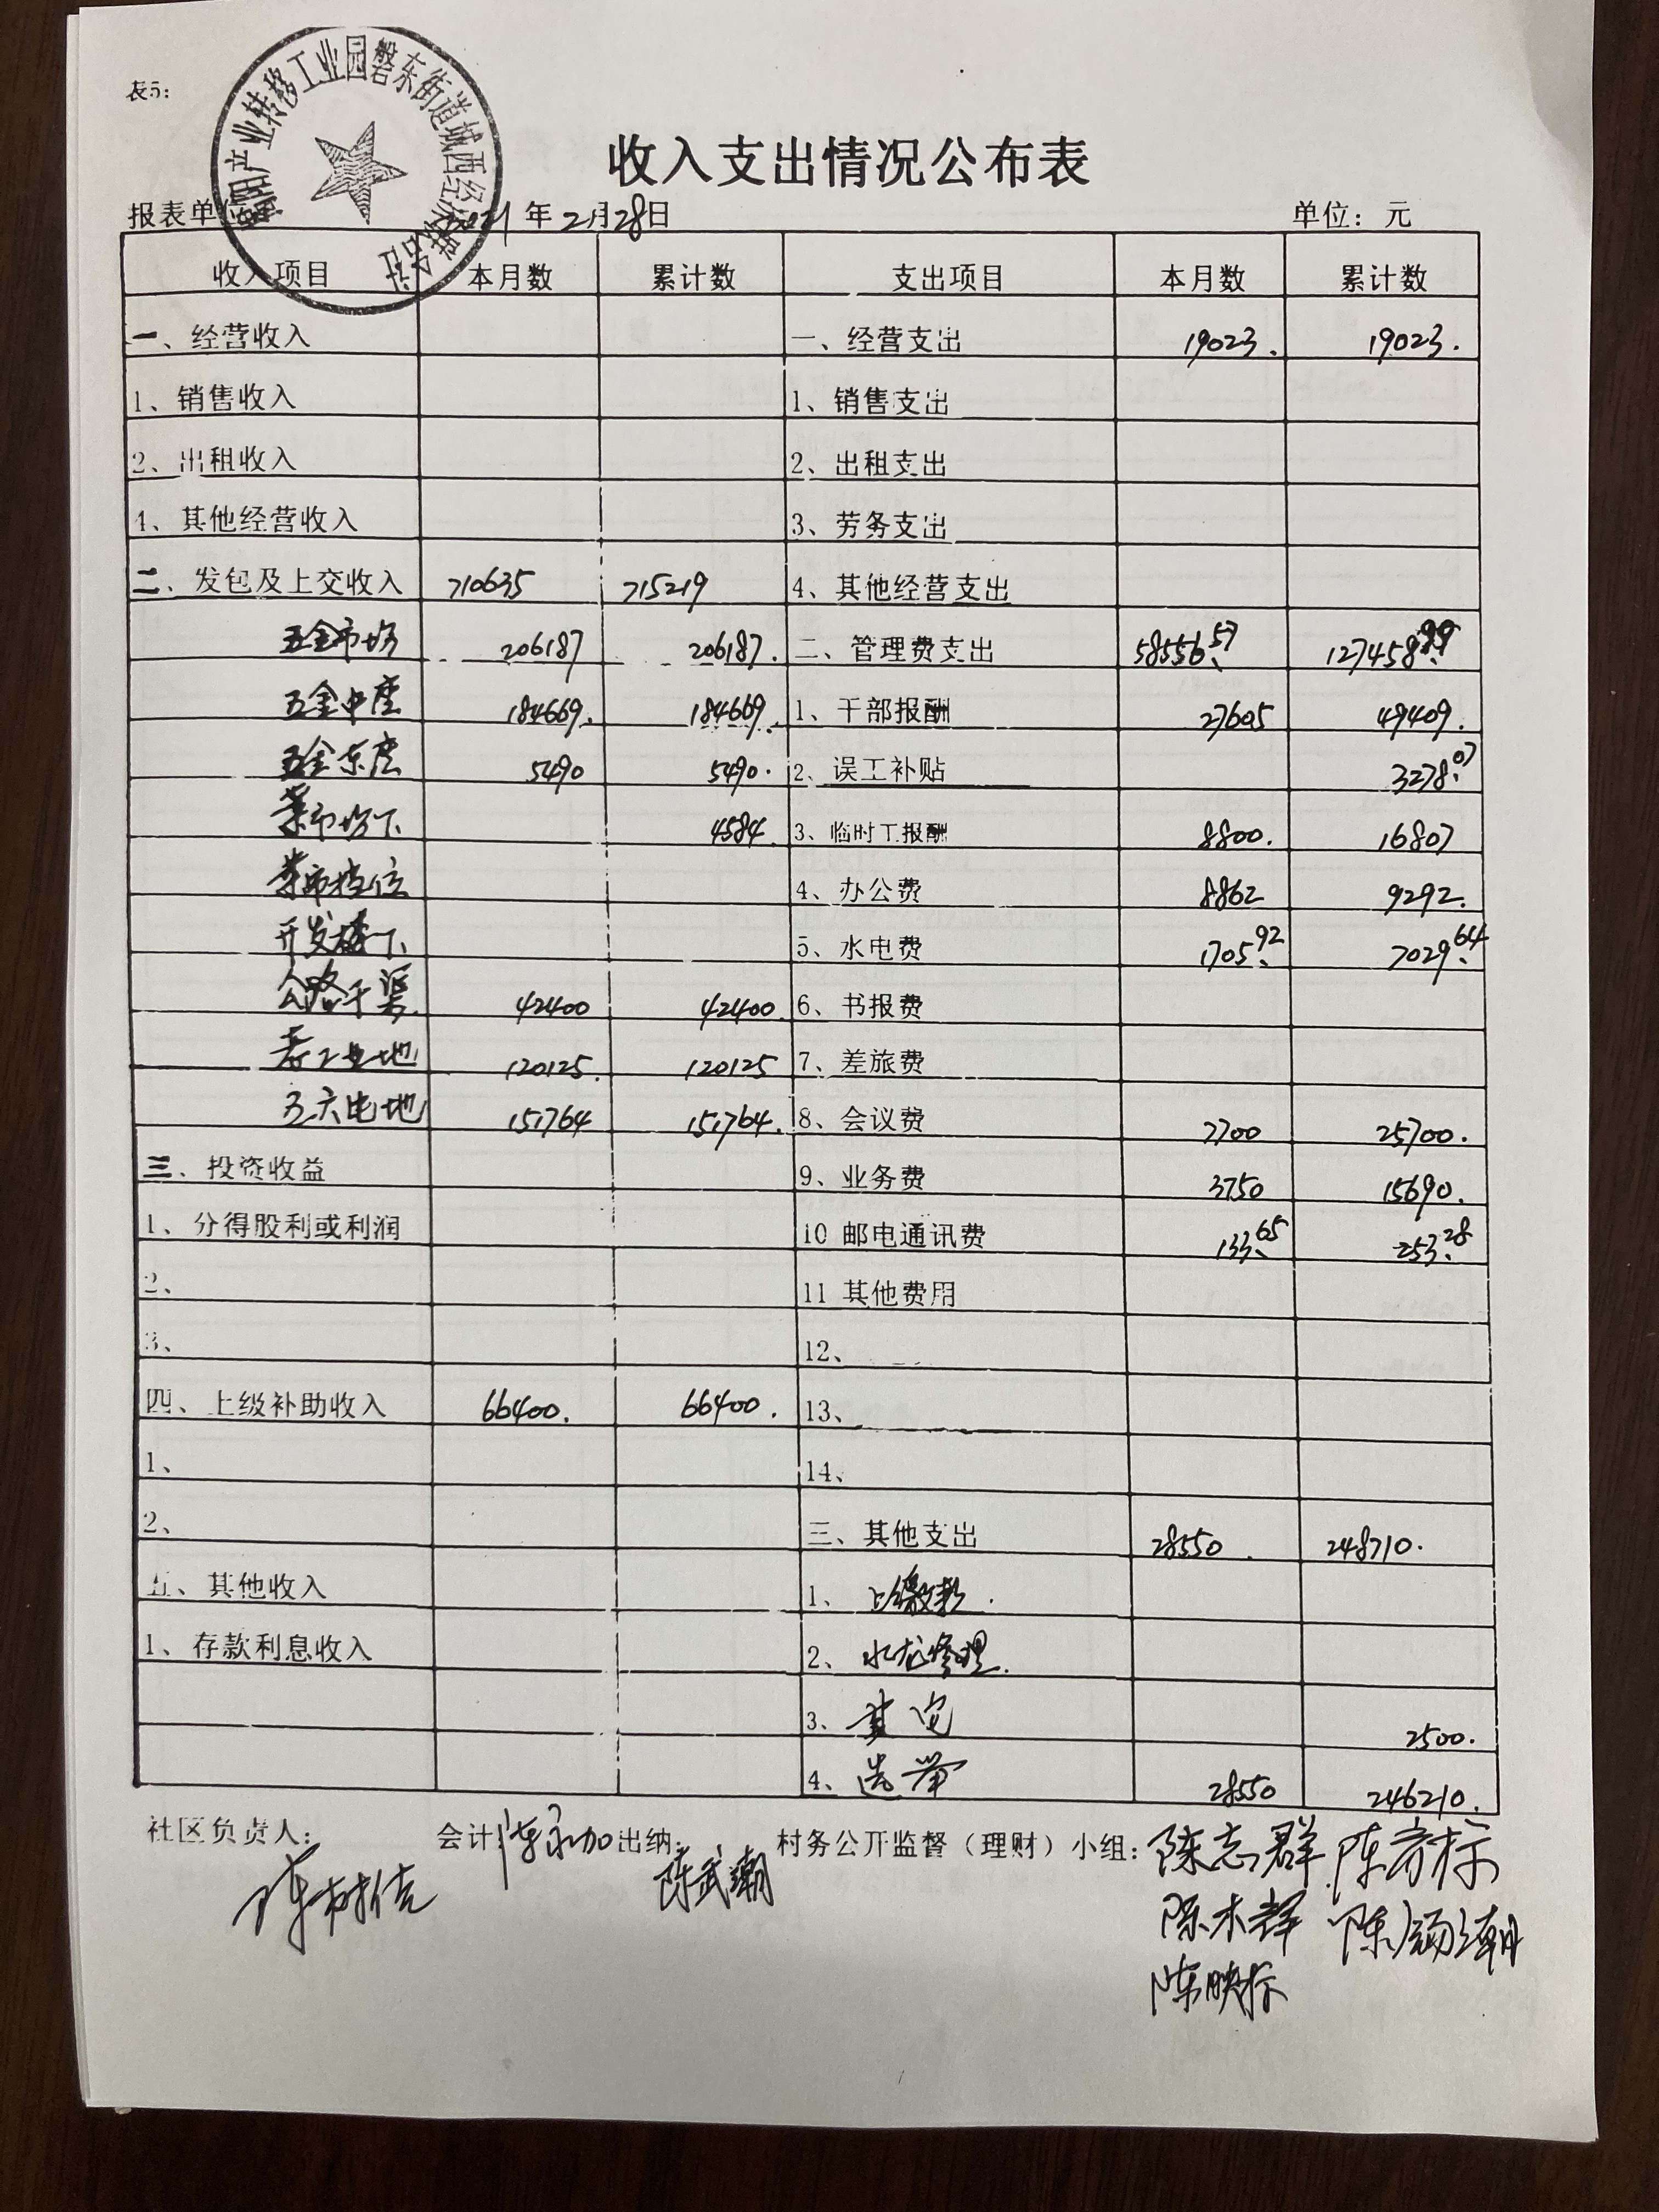 表5:
揭阳产业转移工业园磐东街道城西经济联合社
收入支出情况公布表
报表单位 2021年2月28日 单位: 元
收入项目 本月数 累计数 支出项目 本月数 累计数
一、经营收入 一、经营支出 19023. 19023.
1、销售收入 1、销售支出
2、出租收入 2、出租支出
4、其他经营收入 3、劳务支出
二、发包及上交收入 710635 715219 4、其他经营支出
五金市场 206187 206187. 二、管理费支出 58556.57 127458.99
五金中座 184669. 184669. 1、干部报酬 27605 49409.
五金东座 5490 5490. 2、误工补贴 3278.07
菜市场下 4584. 3、临时工报酬 8800. 16807
菜市挡位 4、办公费 8862 9292.
开发楼下 5、水电费 1705.92 7029.64
公路干渠 42400 42400. 6、书报费
工业地 120125. 120125 7、差旅费
五六屯地 151764 151764. 8、会议费 7700 25700.
三、投资收益 9、业务费 3750 15690.
1、分得股利或利润 10 邮电通讯费 133.65 253.28
2、 11 其他费用
3、 12、
四、上级补助收入 66400. 66400. 13、
1、 14、
2、 三、其他支出 28550. 248710.
五、其他收入 1、上缴款.
1、存款利息收入 2、水龙修理.
3、 2500.
4、选举 28550 246210.
社区负责人: 会计: 陈永加 出纳: 村务公开监督（理财）小组: 陈志群 陈彦标
陈树佳 陈武潮 陈木群 陈扬潮
陈映标